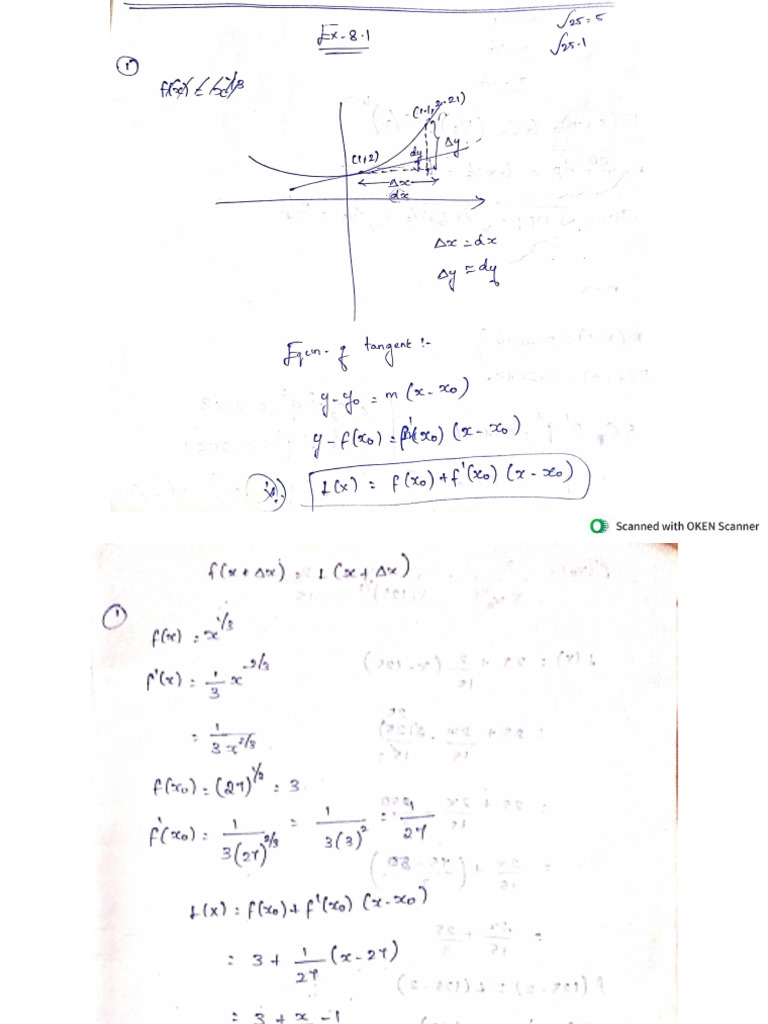 Ex-8.1
√25 = 5
√25.1
1
f(x) = x^1/3
(1.1, 2.21)
(1,2)
dy
Δy
Δx
dx
Δx = dx
Δy ≈ dy
Equn. of tangent :-
y-y₀ = m (x-x₀)
y-f(x₀) = f'(x₀) (x-x₀)
L(x) = f(x₀)+f'(x₀) (x-x₀)
Scanned with OKEN Scanner
f(x+Δx) = L(x+Δx)
1
f(x) = x^1/3
f'(x) = 1/3 x^-2/3
= 1/3x^2/3
f(x₀) = (27)^1/3 = 3
f'(x₀) = 1/3(27)^2/3 = 1/3(3)² = 1/27
L(x) = f(x₀)+f'(x₀) (x-x₀)
= 3 + 1/27 (x-27)
= 3 + x -1